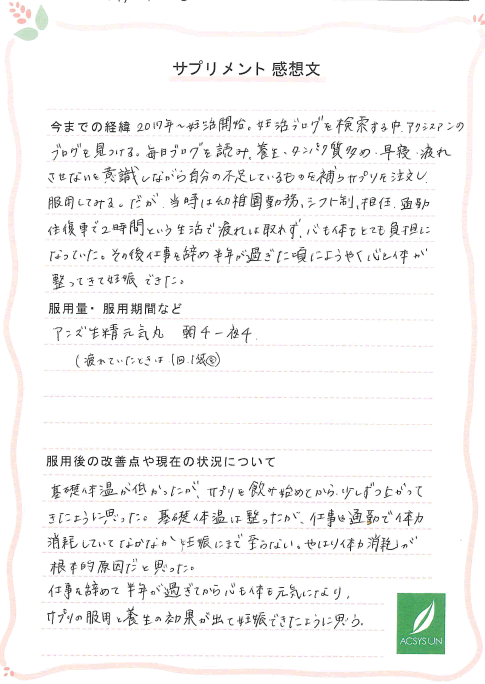 サプリメント 感想文
今までの経緯 2017年〜妊活開始。妊活ブログを検索する中、アクシスアンの
ブログを見つける。毎日ブログを読み、養生、タンパク質多め・早寝・疲れ
させないを意識しながら自分の不足しているものを補うサプリを注文し、
服用してみる。だが、当時は幼稚園勤務、シフト制、担任、通勤
往復車で2時間という生活で疲れは取れず、心も体もとても負担に
なっていた。その後仕事を辞め半年が過ぎた頃にようやく心と体が
整ってきて妊娠できた。
服用量・服用期間など
アンズ生精元気丸 朝4-夜4
(疲れていたときは1回1袋
服用後の改善点や現在の状況について
基礎体温が低かったが、サプリを飲み始めてから少しずつ上がって
きたように思った。基礎体温は整ったが、仕事や通勤で体力
消耗していてなかなか妊娠にまで至らない。やはり体力消耗が
根本的原因だと思った。
仕事を辞めて半年が過ぎてから心も体も元気になり、
サプリの服用と養生の効果が出て妊娠できたように思う。
ACSYSUN